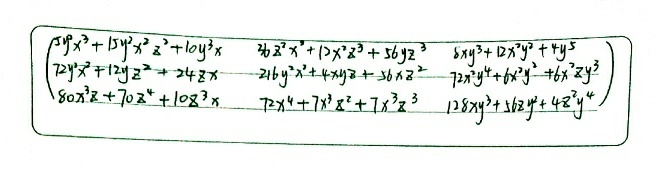 5y²x³ + 15y²x²z³ + 10y³x 36z²x³ + 12x²z³ + 56yz³ 8xy³ + 12x²y² + 4y⁵
72y²x² + 12yz² + 24zx 216y²x² + 4xyz + 56xz² 72x²y⁴ + 6x²y² + 6x²zy³
80x³z + 70z⁴ + 10z³x 72x⁴ + 7x³z² + 7x³z³ 128xy³ + 56zy² + 4z²y⁴